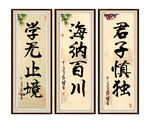 学无止境
海纳百川
君子慎独